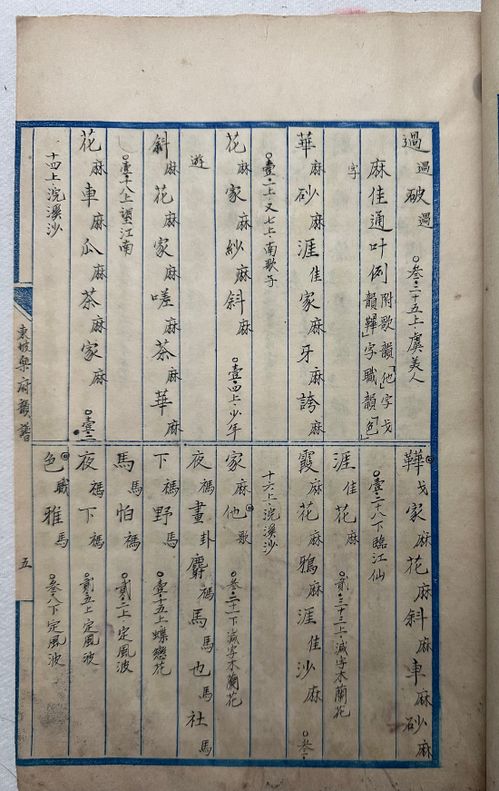 過過破過 ○叁·二十五上·虞美人
麻佳通叶例 附歌韻「他」字戈韻「鞾」字職韻「色」
字
華麻砂麻涯佳家麻牙麻誇麻
○壹·二上·又七上·南歌子
花麻家麻紗麻斜麻 ○壹·四上·少年
遊
斜麻花麻家麻嗟麻茶麻華麻
○壹·十八上望江南
花麻車麻瓜麻茶麻家麻 ○壹·二
十四上浣溪沙
鞾戈家麻花麻斜麻車麻砂麻
○壹·二十八下臨江仙
涯佳花麻 ○貳·二十三上·減字木蘭花
霞麻花麻鴉麻涯佳沙麻 ○叁·
十六上·浣溪沙
家麻他歌 ○叁·二十一下減字木蘭花
夜禡畫卦麝禡馬馬也馬社馬
下禡野馬 ○壹·十五上蝶戀花
馬馬怕禡 ○貳·三上·定風波
夜禡下禡 ○貳·五上定風波
色職雅馬 ○叁·八下定風波
東坡樂府韻譜
五